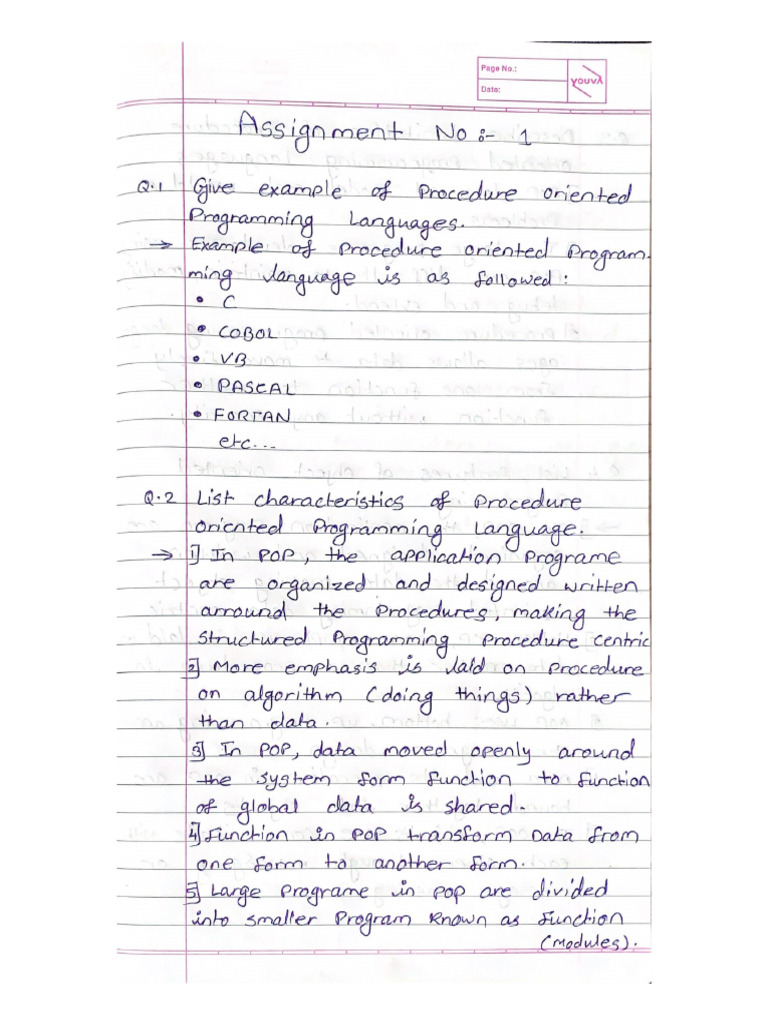 Page No.:
Date:
YOUVA
Assignment No :- 1
Q.1 Give example of Procedure oriented
Programming Languages.
→ Example of Procedure oriented Program-
ming language is as followed :
• C
• COBOL
• VB
• PASCAL
• FORTAN
etc...
Q.2 List characteristics of Procedure
oriented Programming Language.
→ 1] In POP, the application Programe
are organized and designed written
arround the Procedures, making the
Structured Programming Procedure Centric
2] More emphasis is laid on Procedure
on algorithm (doing things) rather
than data.
3] In POP, data moved openly around
the system form function to function
of global data is shared.
4] Function in POP transform Data from
one form to another form.
5] Large Programe in POP are divided
into smaller Program Known as Function
(modules).